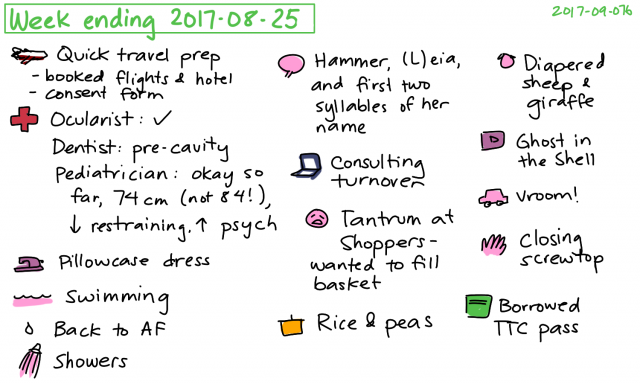 Week ending 2017-08-25
2017-09-07b
Quick travel prep
- booked flights & hotel
- consent form
Ocularist: ✓
Dentist: pre-cavity
Pediatrician: okay so
far, 74cm (not 84!),
↓ restraining, ↑ psych
Pillowcase dress
Swimming
Back to AF
Showers
Hammer, (L)eia,
and first two
syllables of her
name
Consulting
turnover
Tantrum at
Shoppers-
wanted to fill
basket
Rice & peas
Diapered
sheep &
giraffe
Ghost in
the Shell
Vroom!
Closing
screwtop
Borrowed
TTC pass